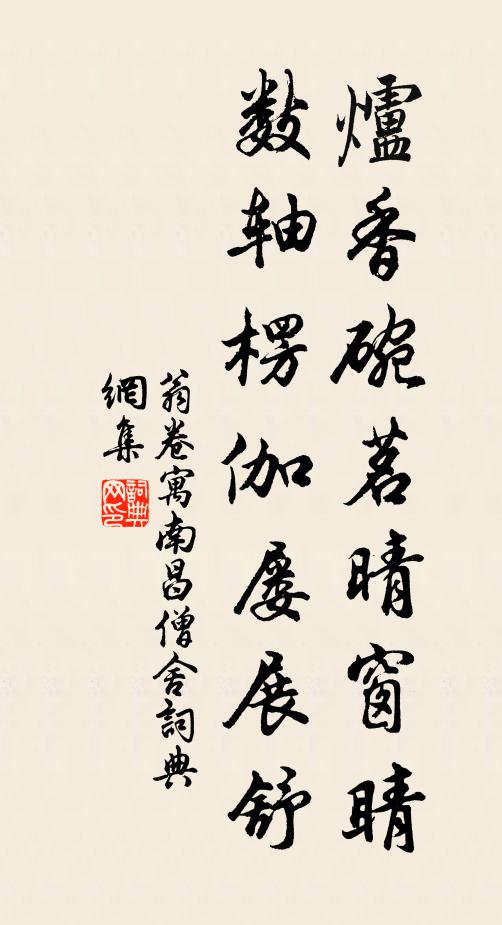 爐香碗茗晴窗晴
數軸楞伽屢展舒
翁卷寓南昌僧舍詞典
網集
詞典
网印